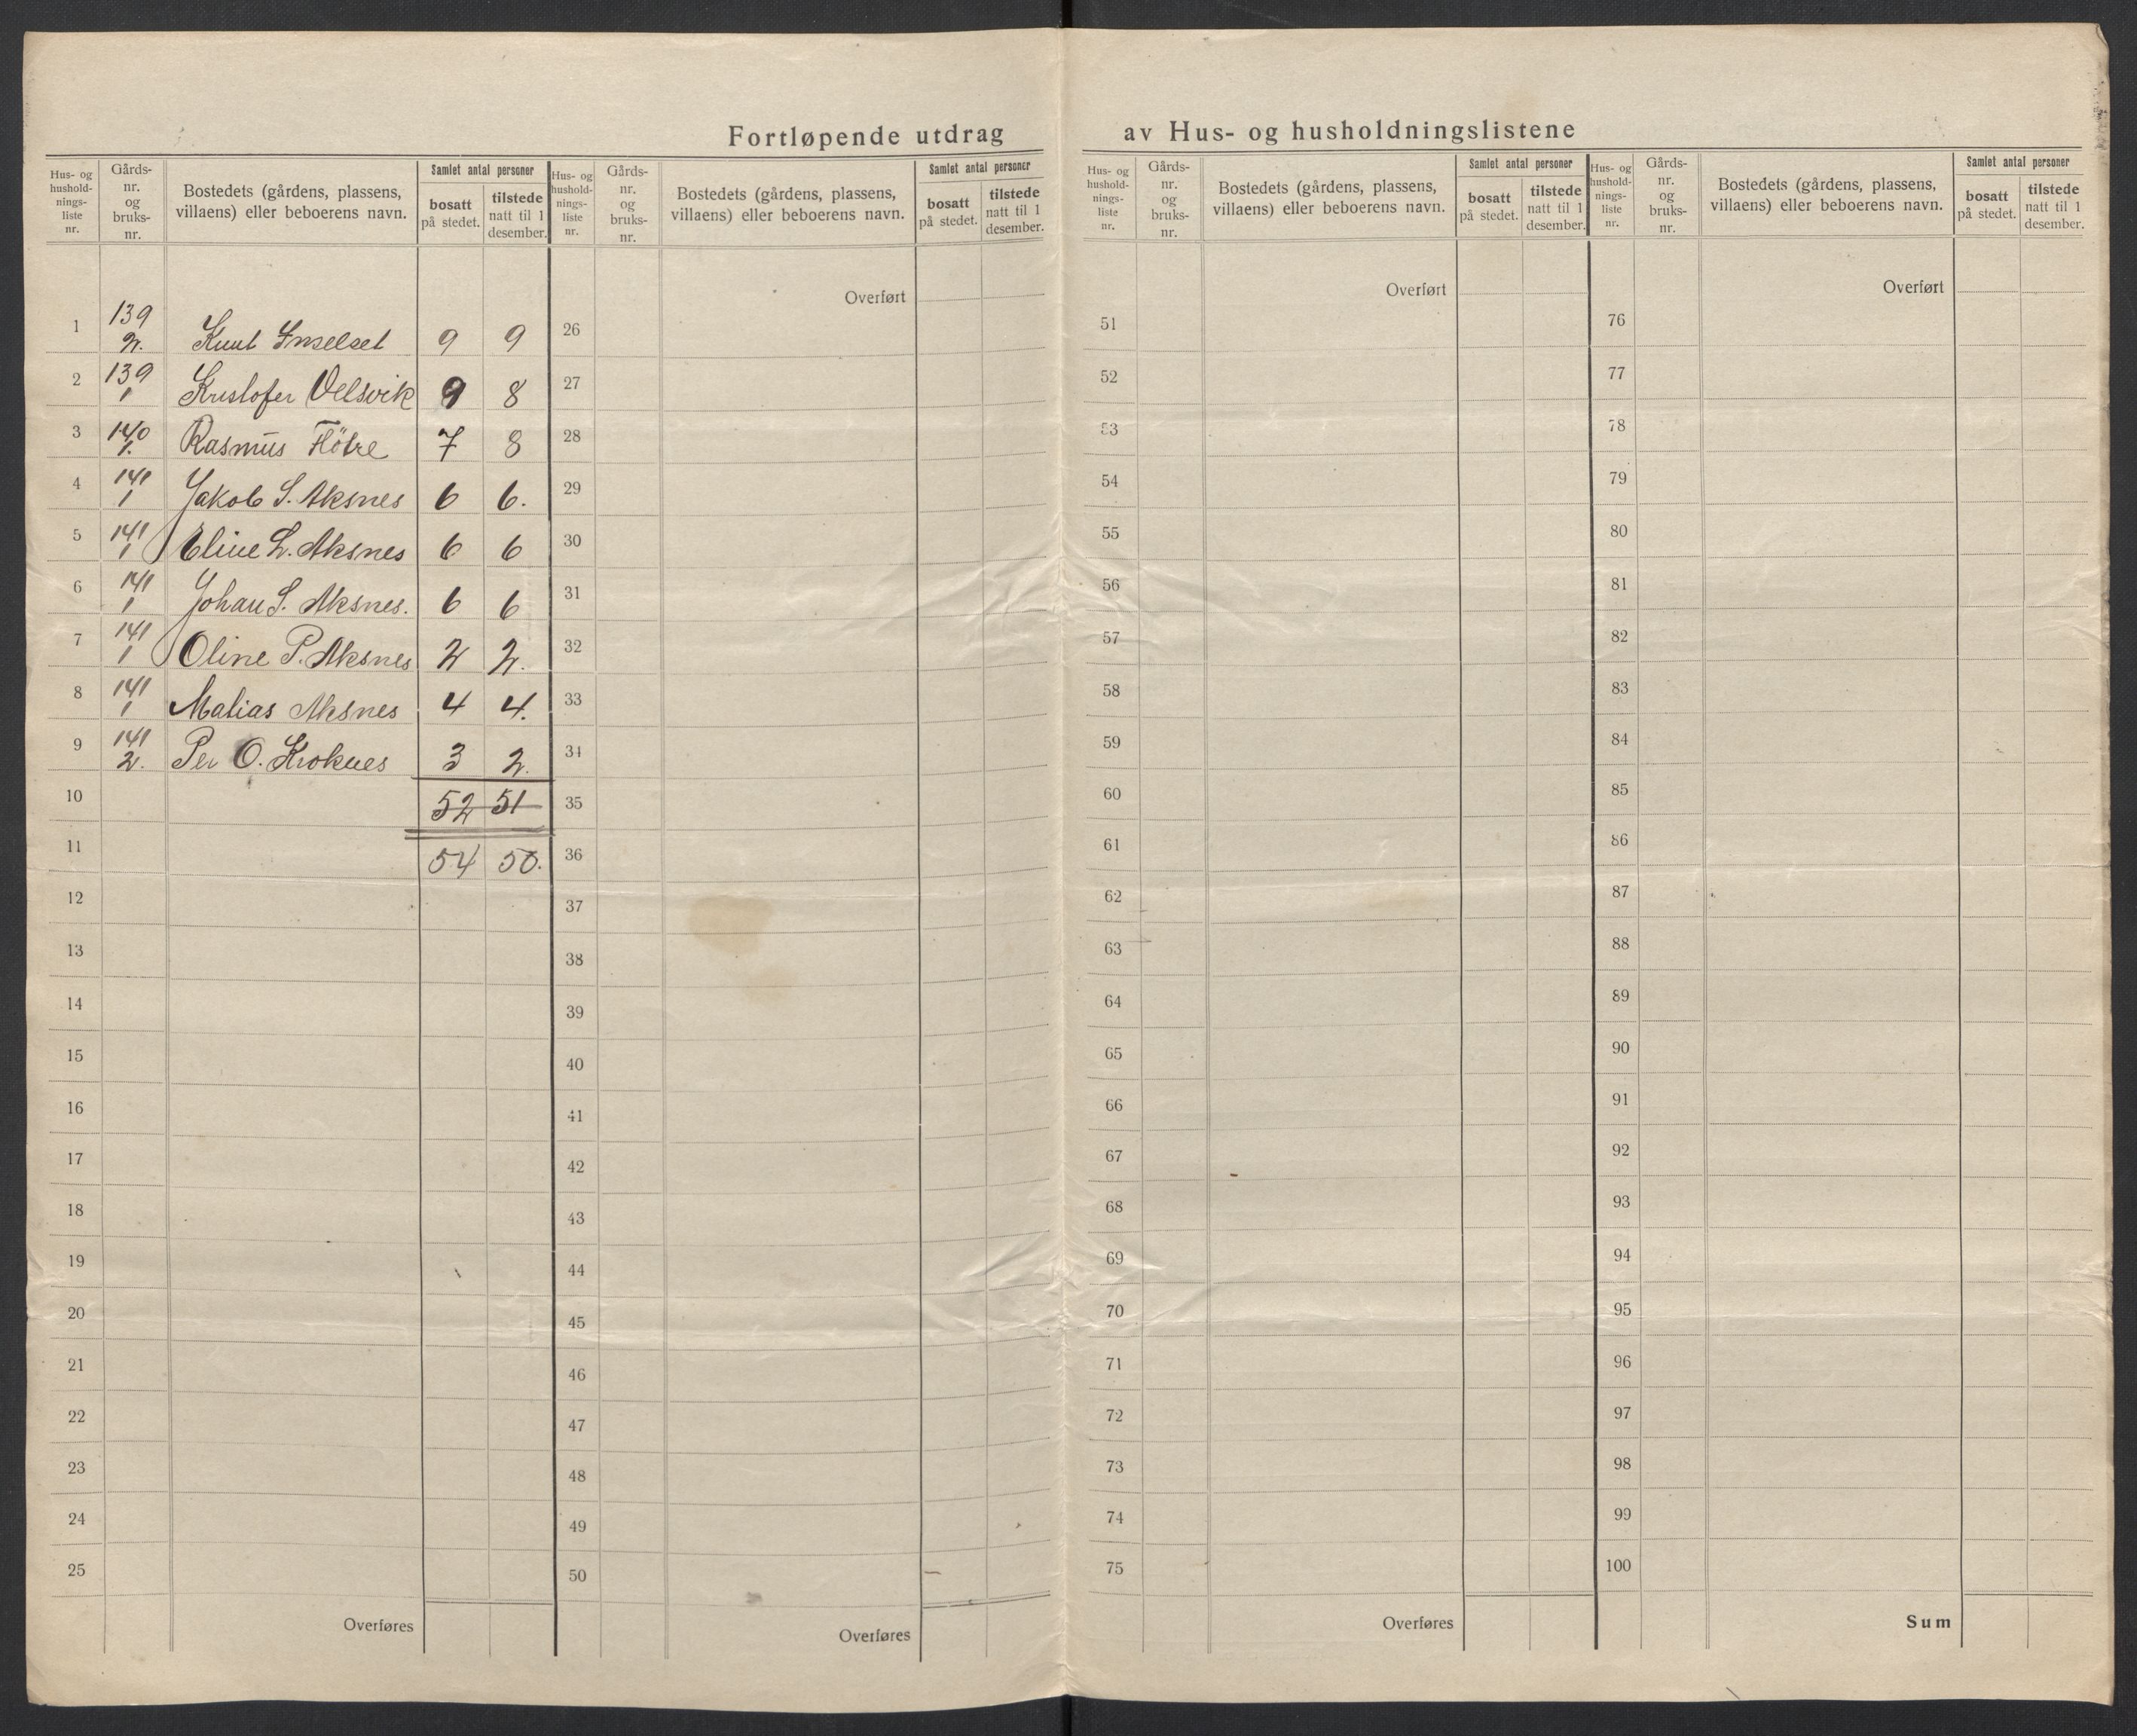 Fortløpende utdrag av Hus- og husholdningslistene
Hus- og hushold- nings- liste nr.
Gårds- nr. og bruks- nr.
Bostedets (gårdens, plassens, villaens) eller beboerens navn.
Samlet antal personer
bosatt på stedet.
tilstede natt til 1 desember.
1 139 2. Knut Inselset 9 9
2 139 1 Kristofer Velsvik 9 8
3 140 1. Rasmus Flötre 7 8
4 141 1 Jakob S. Aksnes 6 6.
5 141 1 Eline L. Aksnes 6 6
6 141 1 Johan S. Aksnes. 6 6
7 141 1 Oline P. Aksnes 2 2.
8 141 1 Matias Aksnes 4 4.
9 141 2. Per O. Kroknes 3 2.
10 52 51
11 54 50.
12
13
14
15
16
17
18
19
20
21
22
23
24
25
Overføres
Hus- og hushold- nings- liste nr.
Gårds- nr. og bruks- nr.
Bostedets (gårdens, plassens, villaens) eller beboerens navn.
Samlet antal personer
bosatt på stedet.
tilstede natt til 1 desember.
Overført
26
27
28
29
30
31
32
33
34
35
36
37
38
39
40
41
42
43
44
45
46
47
48
49
50
Overføres
Hus- og hushold- nings- liste nr.
Gårds- nr. og bruks- nr.
Bostedets (gårdens, plassens, villaens) eller beboerens navn.
Samlet antal personer
bosatt på stedet.
tilstede natt til 1 desember.
Overført
51
52
53
54
55
56
57
58
59
60
61
62
63
64
65
66
67
68
69
70
71
72
73
74
75
Overføres
Hus- og hushold- nings- liste nr.
Gårds- nr. og bruks- nr.
Bostedets (gårdens, plassens, villaens) eller beboerens navn.
Samlet antal personer
bosatt på stedet.
tilstede natt til 1 desember.
Overført
76
77
78
79
80
81
82
83
84
85
86
87
88
89
90
91
92
93
94
95
96
97
98
99
100
Sum